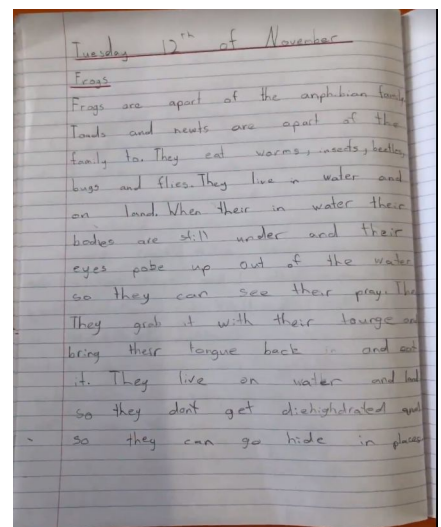 Tuesday 12th of November
Frogs
Frogs are apart of the anphibian family
Toads and newts are apart of the
family to. They eat worms, insects, beatles,
bugs and flies. They live in water and
on land. When their in water their
bodies are still under and their
eyes pobe up out of the water
so they can see their pray. The
They grab it with their tounge and
bring their tongue back in and eat
it. They live on water and land
so they dont get diehighdrated and
so they can go hide in places